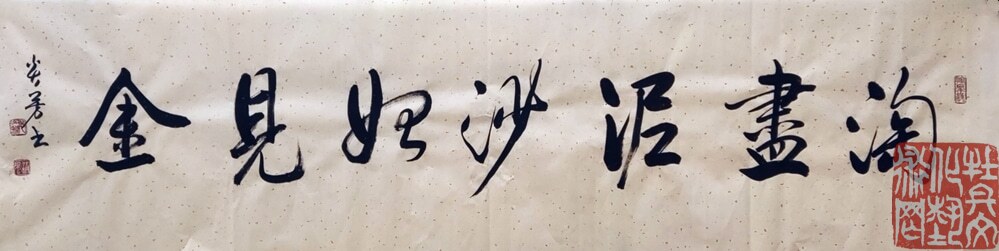 淘盡泥沙始見金
炎芳书